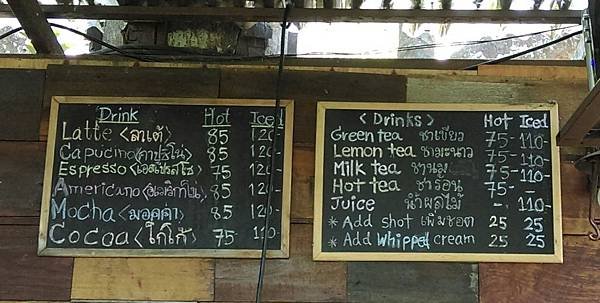 Drink Hot Iced
Latte <ลาเต้> 85 120-
Capucino <คาปูชิโน่> 85 120-
Espresso <เอสเปรสโซ่> 75 120-
Americano <อเมริกาโน่> 85 120-
Mocha <มอคค่า> 85 120-
Cocoa <โกโก้> 75 110-
<Drinks> Hot Iced
Green tea ชาเขียว 75- 110-
Lemon tea ชามะนาว 75- 110-
Milk tea ชานม 75- 110-
Hot tea ชาร้อน 75- -
Juice น้ำผลไม้ - 110-
* Add shot เพิ่มชอต 25 25
* Add whipped cream 25 25